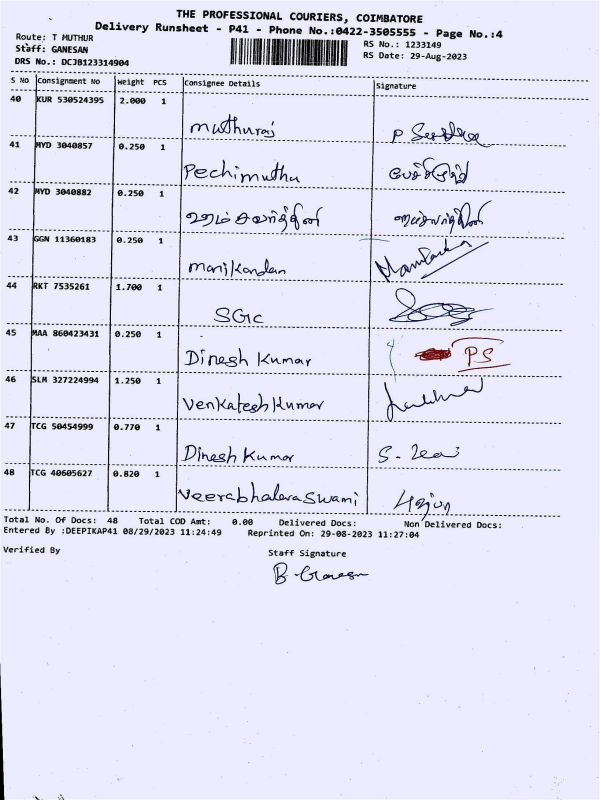 THE PROFESSIONAL COURIERS, COIMBATORE
Delivery Runsheet - P41 - Phone No.:0422-3505555 - Page No.:4
Route: T MUTHUR
RS No.: 1233149
Staff: GANESAN
RS Date: 29-Aug-2023
DRS No.: DCJB123314904
S No Consignment No Weight PCS Consignee Details Signature
40 KUR 530524395 2.000 1
muthuraj
41 MYD 3040857 0.250 1
Pechimuthu
42 MYD 3040882 0.250 1
43 GGN 11360183 0.250 1
manikandan
44 RKT 7535261 1.700 1
SGIC
45 MAA 860423431 0.250 1
Dinesh Kumar PS
46 SLM 327224994 1.250 1
Venkatesh Kumar
47 TCG 50454999 0.770 1
Dinesh Kumar
48 TCG 40605627 0.820 1
Total No. Of Docs: 48 Total COD Amt: 0.00 Delivered Docs: Non Delivered Docs:
Entered By :DEEPIKAP41 08/29/2023 11:24:49 Reprinted On: 29-08-2023 11:27:04
Verified By Staff Signature